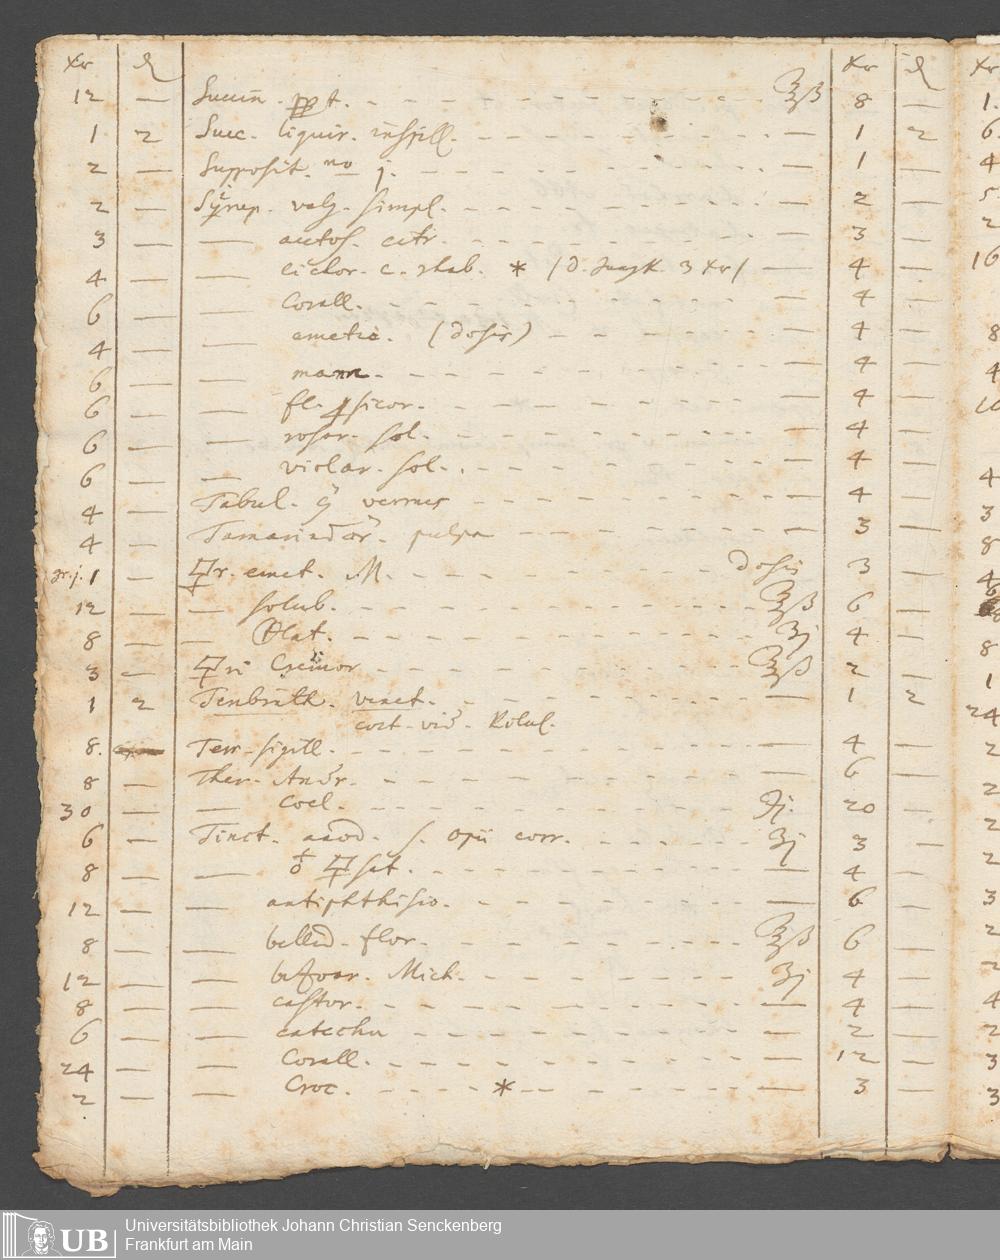 xr ₰ xr ₰ xr
12 — Succin. ppt. ʒß 8 — 1.
1 2 Succ. liquir. inspiss. — 1 2 6.
2 — Supposit. no j. — 1 — 4
2 — Syrup. — simpl. — 2 — 5
3 — — acetos. citr. — 3 — 2
4 — — cichor. c. rhab. * — 4 — 16
6 — — Corall. — 4 —
4 — — emetic. (dosis) — 4 — 8
6 — — mann. — 4 — 4
6 — — fl. persicor. — 4 —
6 — — rosar. sol. — 4 —
6 — — violar. sol. — 4 — 4
4 — Tabul. — 4 — 3
4 — Tamarindor. pulpa — 3 — 8
gr. j. 1 — 🜿r. emet. M. dosis 3 — 4
12 — — solub. ʒß 6 —
8 — — ʒj 4 — 8
3 — 🜿ri Cremor ʒß 2 — 1
1 2 — 1 2 24
cort. 
8. — Terr. sigill. — 4 — 2
8 — Ther. Andr. — 6 —
30 — — Coel. 20 — 2
6 — Tinct. anod. s. opii corr. ʒj 3 — 2
8 — — — 4 — 2
12 — — antiphthisic. — 6 — 3
8 — — bellid. flor. ʒß 6 — 2
12 — — bezoar. Mich. ʒj 4 — 2
8 — — castor. — 4 — 4
6 — — catechu — 2 — 2
24 — — Corall. — 12 — 3
2 — — Croc. * — 3 — 3
UB Universitätsbibliothek Johann Christian Senckenberg
Frankfurt am Main